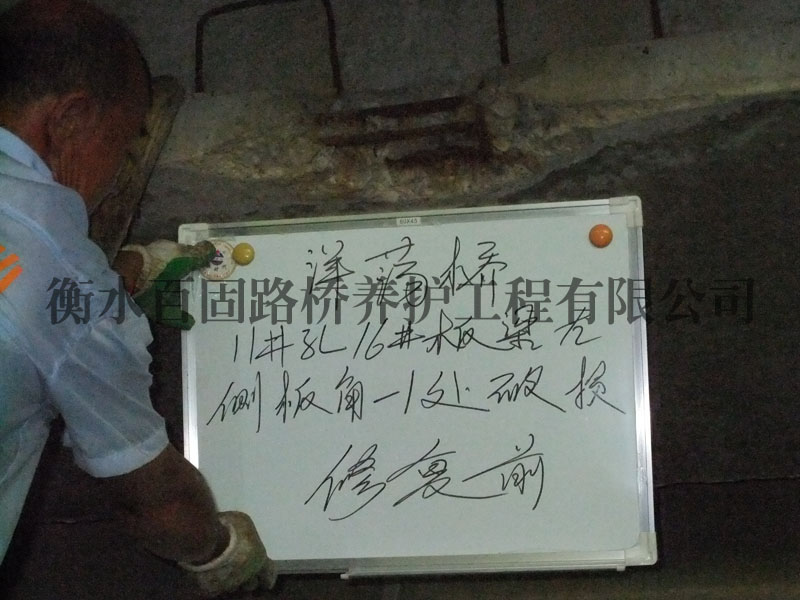 60X45
洋荡桥
衡水百固路桥养护工程有限公司
11#孔16#板梁左
侧板角-1处破损
修复前